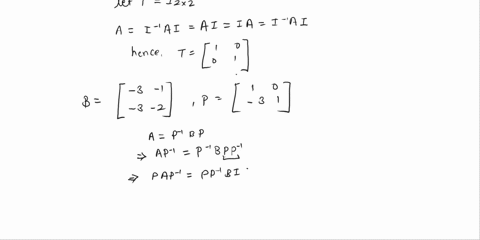 let T = I2x2
A = I⁻¹AI = AI = IA = I⁻¹AI
hence. T = [1 0
0 1]
B = [-3 -1
-3 -2] , P = [1 0
-3 1]
A = P⁻¹ B P
⇒ AP⁻¹ = P⁻¹ B P P⁻¹
⇒ PAP⁻¹ = PP⁻¹ B I